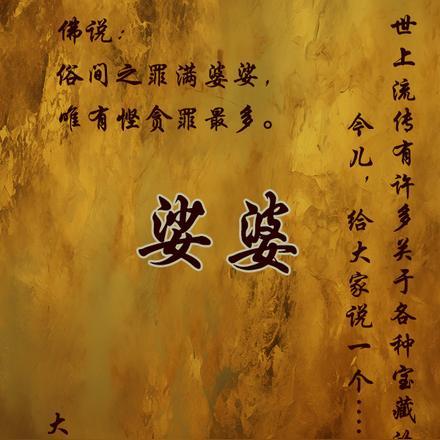 佛说：
俗间之罪满婆娑，
唯有悭贪罪最多。
娑婆
世上流传有许多关于各种宝藏
今儿，给大家说一个····
大